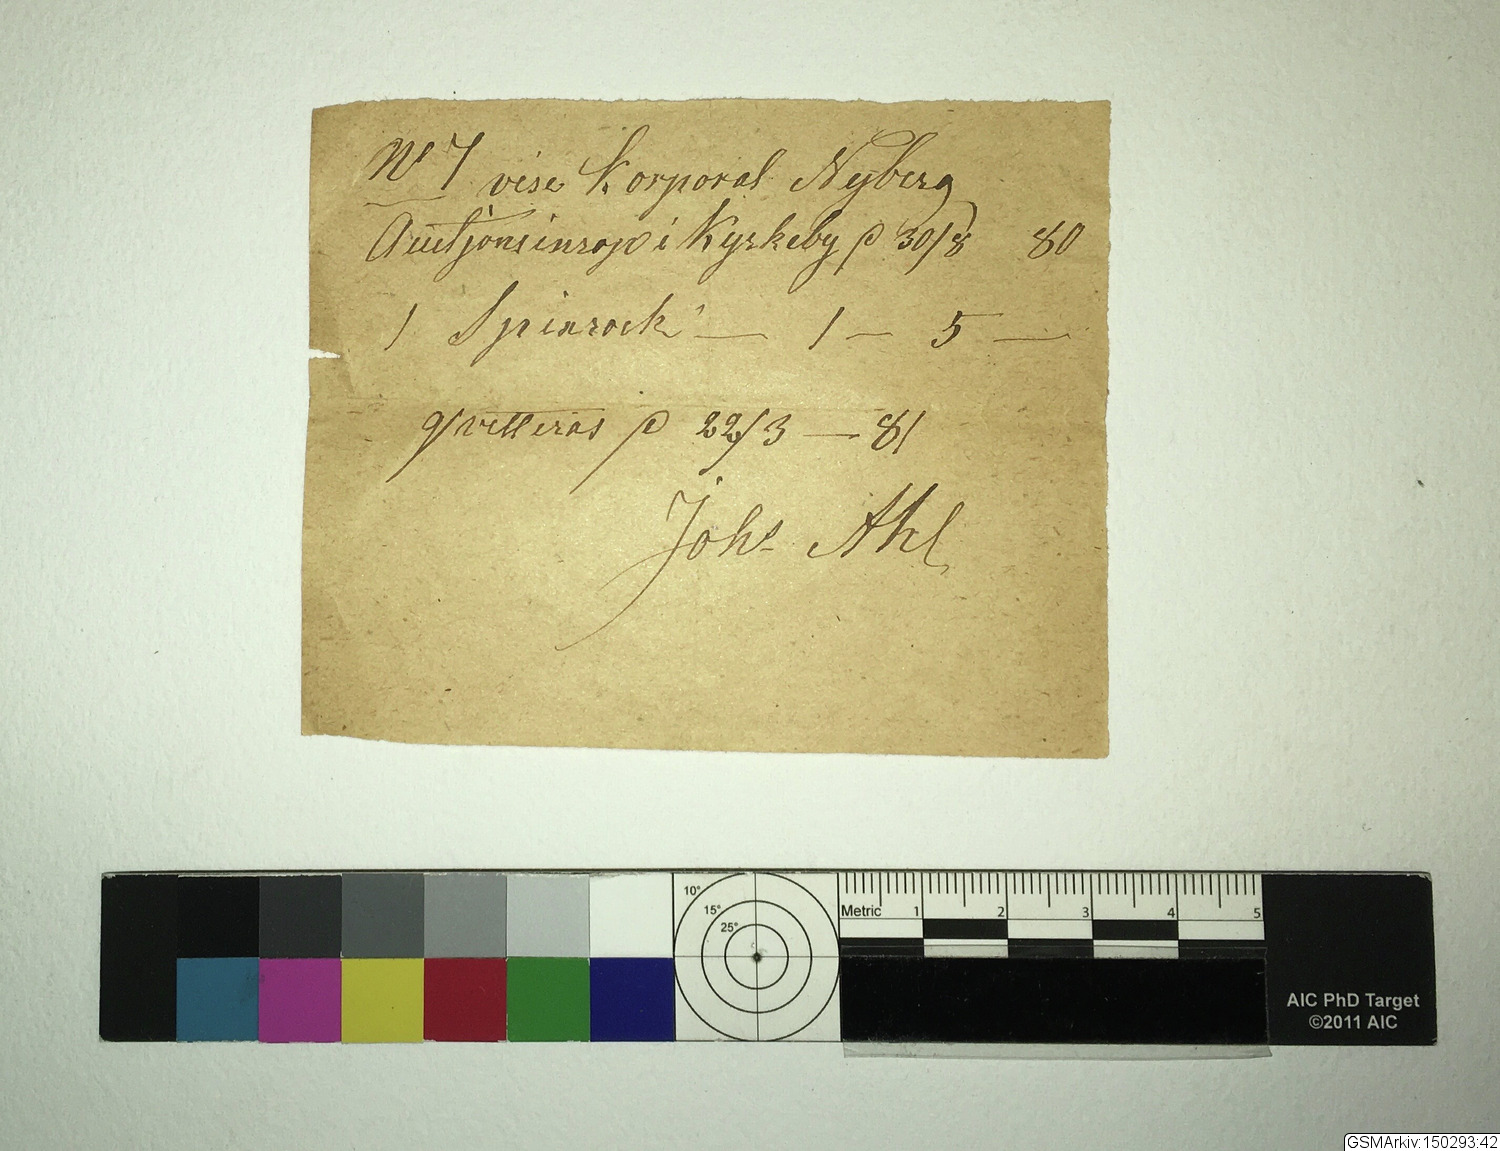 No 7 vise Korporal Nyberg
Auctjonsinrop i Kyrkeby p 30/8 80
1 Spinrock — 1 — 5 —
qvitteras p 22/3 — 81
Johs Ahl
10° 15° 25°
Metric 1 2 3 4 5
AIC PhD Target
©2011 AIC
GSMArkiv:150293:42